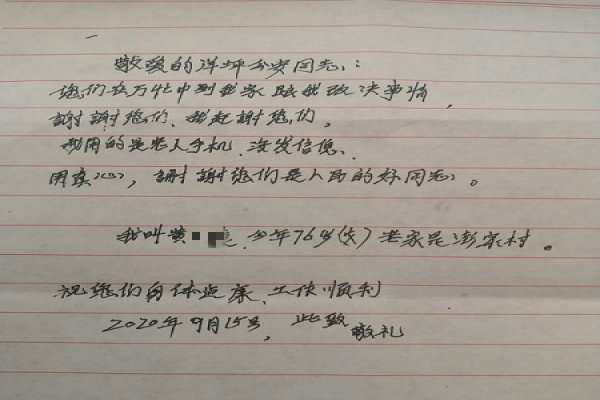 敬爱的洋坪公安同志:
您们在万忙中到我家跟我政决事情,
謝謝您们、我起謝您们,
我用的是老人手机、没发信息、
用真心,謝謝您们是人民的好同志。
我叫黄 今年76岁(女)老家是澎家村。
祝您们身体健康、工作顺利
2020年9月15号,此致
敬礼